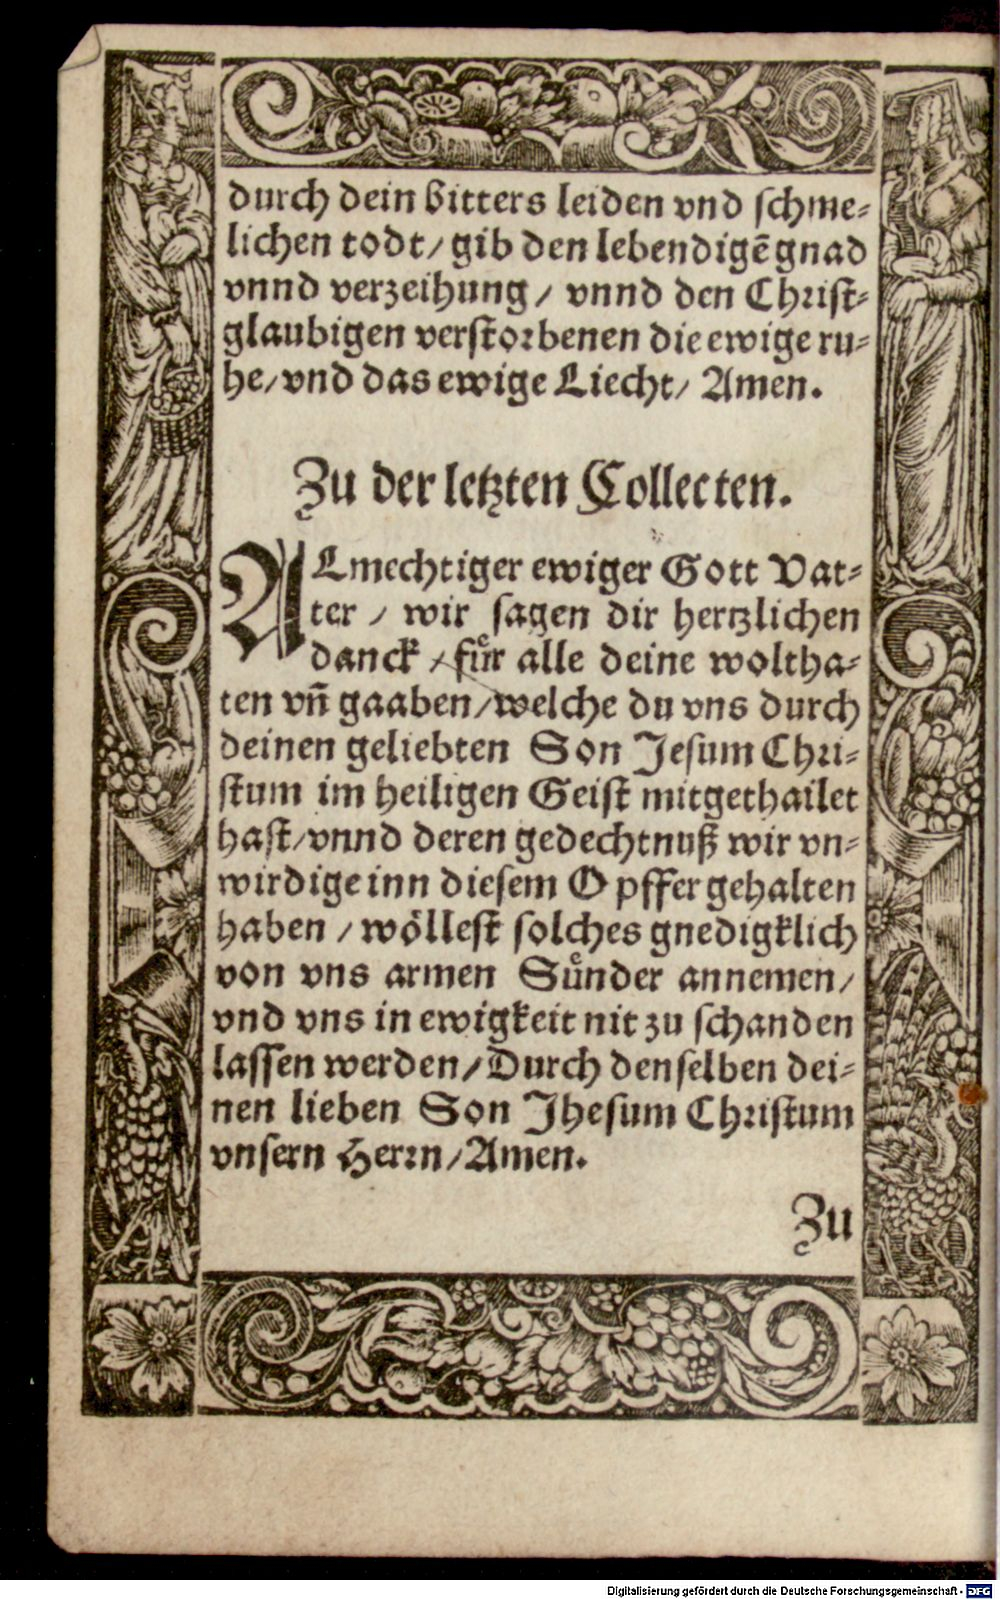 durch dein bitters leiden vnd schme-
lichen todt/ gib den lebendigē gnad
vnnd verzeihung / vnnd den Christ-
glaubigen verstorbenen die ewige ru-
he/ vnd das ewige Liecht/ Amen.
Zu der letzten Collecten.
ALmechtiger ewiger Gott Vat-
ter / wir sagen dir hertzlichen
danck / fuͤr alle deine woltha-
ten vn̄ gaaben/ welche du vns durch
deinen geliebten Son Jesum Chri-
stum im heiligen Geist mitgethailet
hast/ vnnd deren gedechtnuß wir vn-
wirdige inn diesem Opffer gehalten
haben / wöllest solches gnedigklich
von vns armen Suͤnder annemen/
vnd vns in ewigkeit nit zu schanden
lassen werden/ Durch denselben dei-
nen lieben Son Jhesum Christum
vnsern Herrn/ Amen.
Zu
Digitalisierung gefördert durch die Deutsche Forschungsgemeinschaft - DFG